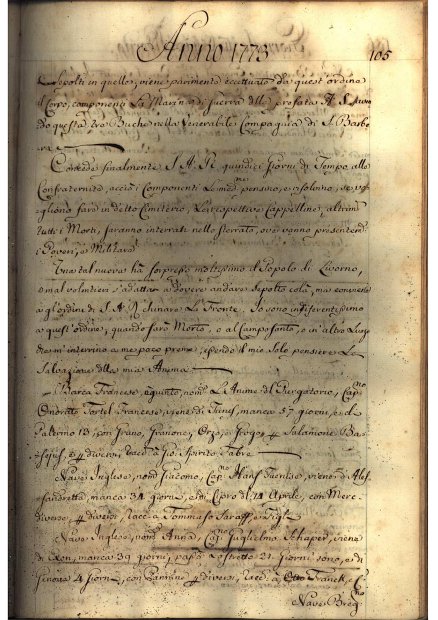 Anno 1773
105
Sepolti in quelle, viene parimente eccettuato da quest'ordine
il Corpo, componenti La Marina di Guerra della prefata A. S. aven
do questa tre Buche nella Venerabile Compagnia di S. Barbe
ra
Concede finalmente S. A. R. quindici Giorni di Tempo alle
Confraternite, acciò i Componenti Le med. pensino, e risolvino, se vo
gliono fare in detto Cimiterio, Le respettive Cappelline, altrim.
tutti i Morti, saranno interrati nello sterrato, ove vanno presentem.
i Poveri, e Militari
Una tal nuova ha sorpreso moltissimo il Popolo di Livorno,
e mal volentieri s'adattan a dovere andare sepolti colà, ma conviene
agl'ordini di S. A. R. chinare La Fronte, Io sono indifferentissimo
a quest'ordine, quando sarò Morto, o al Camposanto, o in altro Luogo
che m'interrino a me poco preme, essendo il mio Solo pensiero La
Salvazione della mia Anima
Barca Francese, nom. L'Anime del Purgatorio, Cap.no
Onorato Tortel Francese, viene di Tunis, manca 57 giorni, e di
Palermo 13, con Grano, Orzo, e Salamione Ba
e diversi, racc. a Gio. Spirito Fabre
Nave Inglese, nom. Giacomo, Cap.no viene d'Ales
sandretta, manca 34 giorni, e di Cipro il 24 Aprile, con Merc.
diverse, diversi, racc. a Tommaso
Nave Inglese, nom. Anna, Cap.no Guglielmo Schaper, viene
di manca 39 giorni, passò Lo stretto 21 Giorni sono, e di
Genova 4 Giorni, con diversi, racc. a Otto Franck, e C.
Nave Breg.